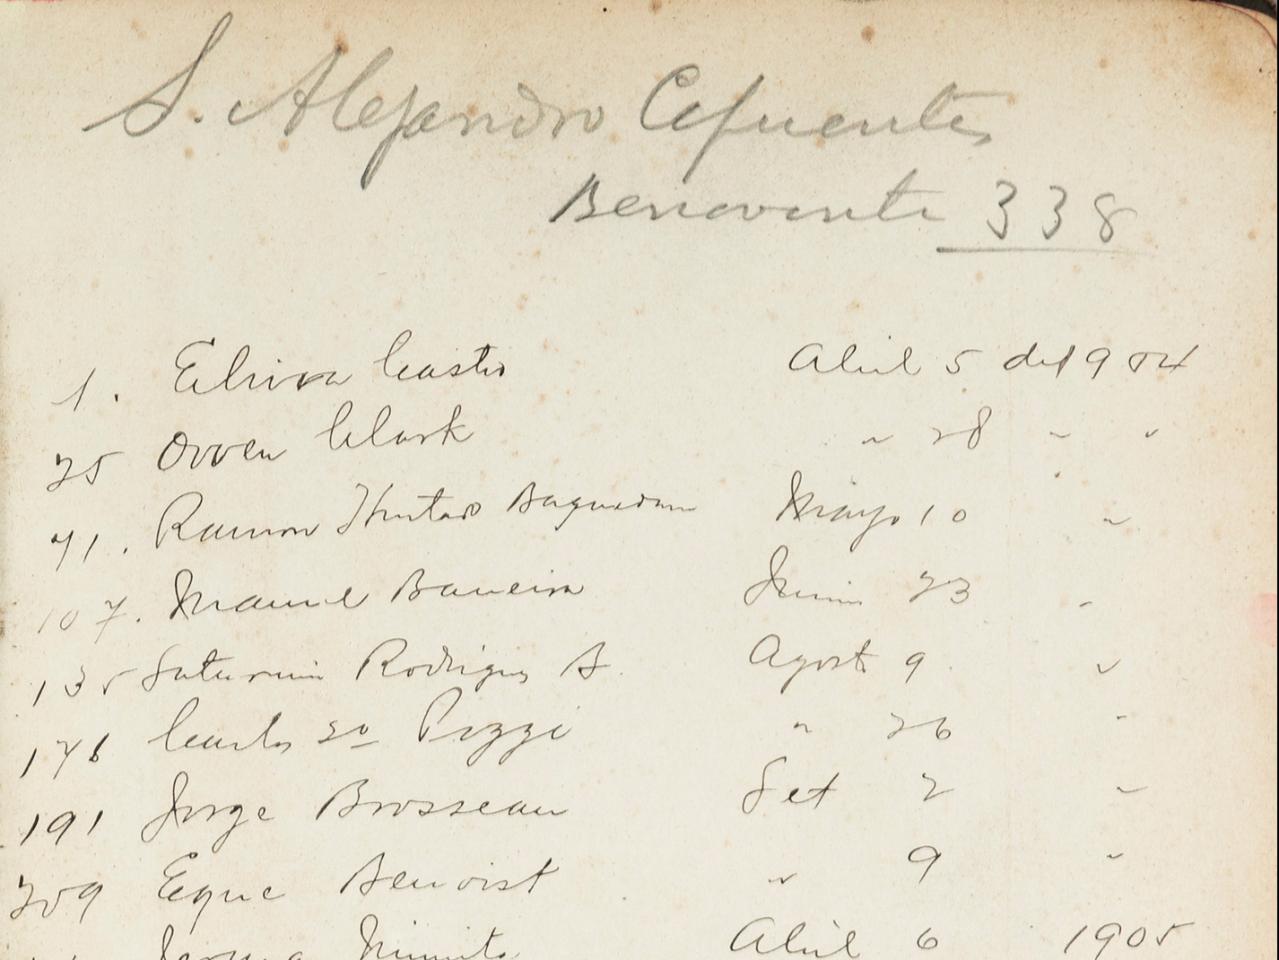 S. Alejandro Cifuentes
Benavente 338
1. Elvira Castro Abril 5 del 904
25 Owen Clark " 28 " "
71. Ramon Hurtado Baquedano Mayo 10 "
107. Manuel Junio 23 "
135 Saturnino Rodriguez B. Agosto 9 "
176 Carlos 2o Pozzi " 26 "
191 Jorge Brosseau Set 2 "
209 Benoist " 9 "
Abril 6 1905